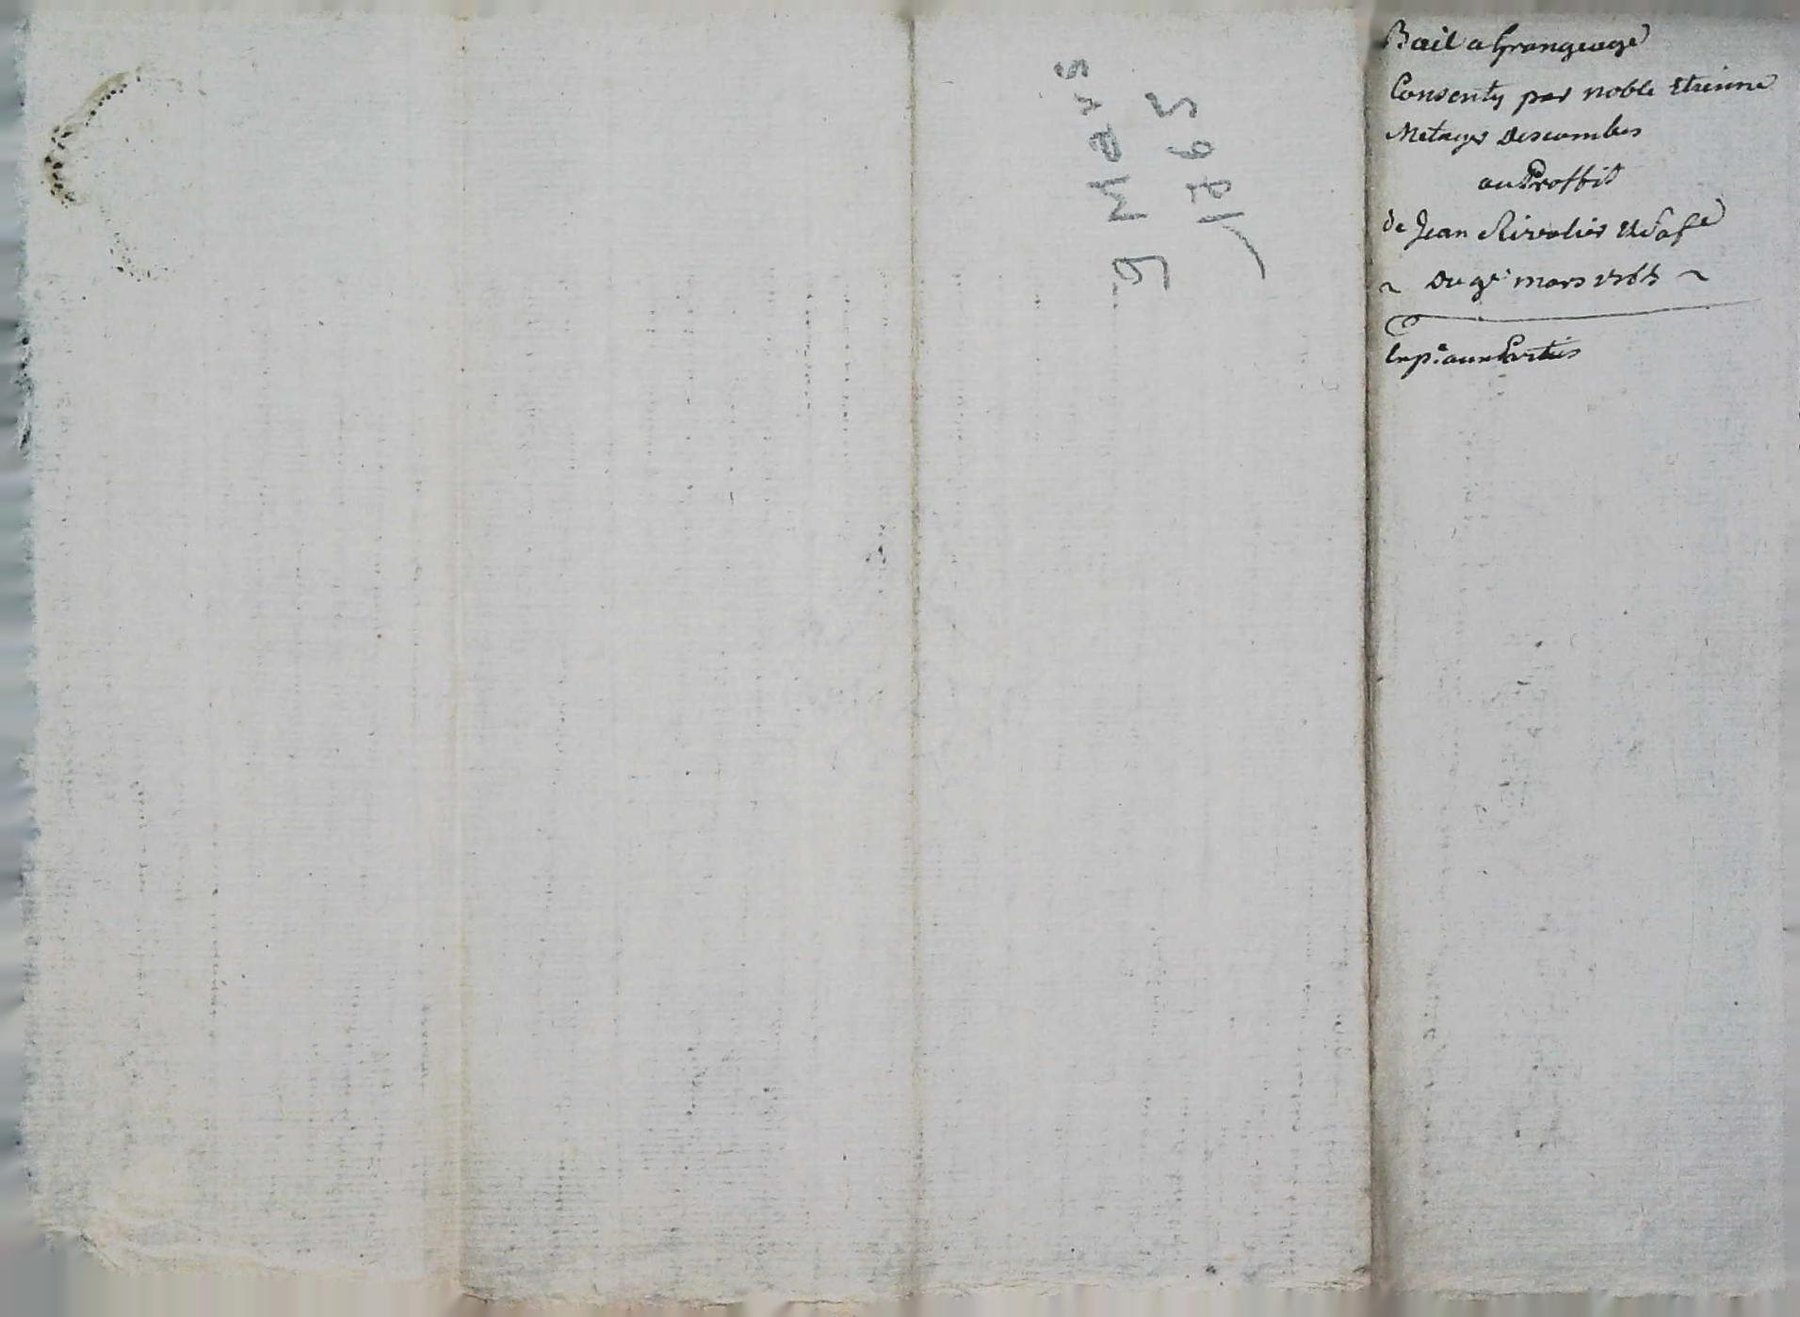 9 Mars
1765
Bail a Grangeage
Consenty par noble Etienne
Metayer Descombes
au Proffit
de Jean Rivalier
~ Du 9e mars 1765 ~
Exp.e aux Parties